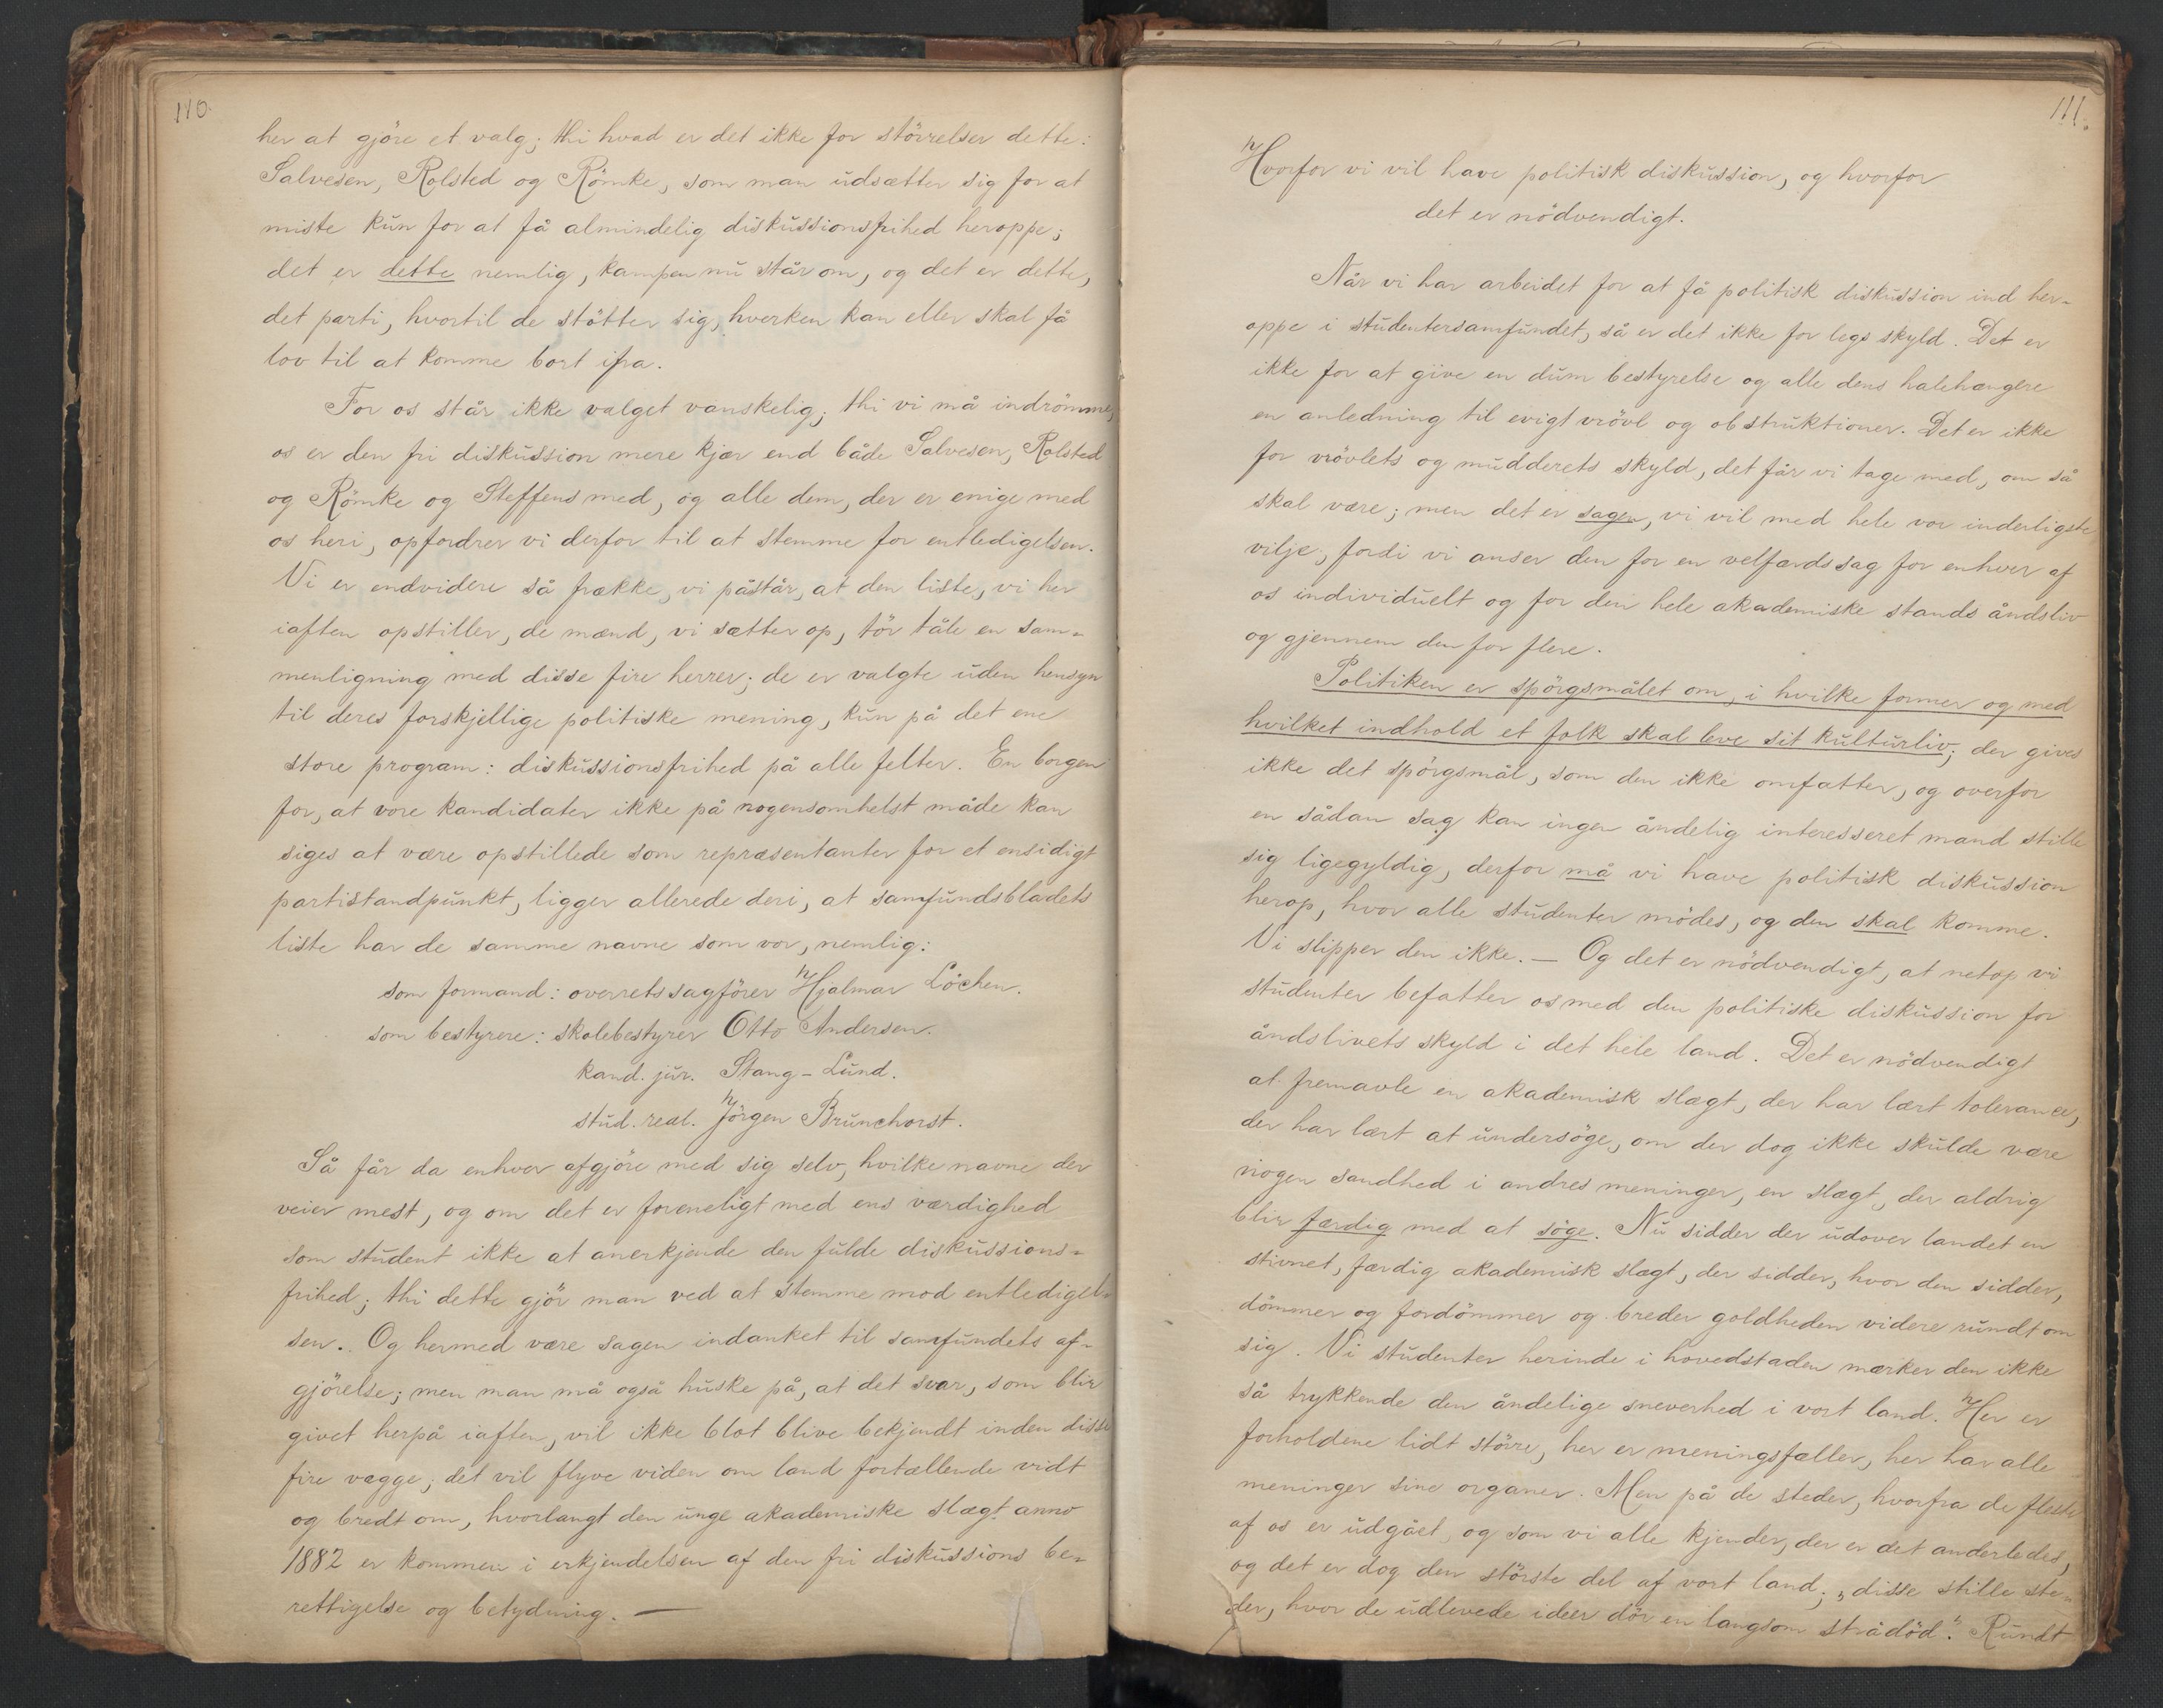 110.
her at gjöre et valg; thi hvad er det ikke for störrelser dette:
Salvesen, Rolsted og Römke, som man udsætter sig for at
miste kun for at få almindelig diskussionsfrihed heroppe;
det er dette nemlig, kampen nu står om, og det er dette,
det parti, hvortil de stötter sig, hverken kan eller skal få
lov til at komme bort ifra.
For os står ikke valget vanskelig; thi vi må indrömme,
os er den fri diskussion mere kjær end både Salvesen, Rolsted
og Römke og Steffens med, og alle dem, der er enige med
os heri, opfordrer vi derfor til at stemme for entledigelsen.
Vi er endvidere så frække, vi påstår, at den liste, vi her
iaften opstiller, de mænd, vi sætter op, tör tåle en sam-
menligning med disse fire herrer; de er valgte uden hensyn
til deres forskjellige politiske mening, kun på det ene
store program: diskussionsfrihed på alle felter. En borgen
for, at vore kandidater ikke på nogensomhelst måde kan
siges at være opstillede som repræsentanter for et ensidigt
partistandpunkt, ligger allerede deri, at samfundsbladets
liste har de samme navne som vor, nemlig:
som formand: overretssagförer Hjalmar Löchen.
som bestyrere: skolebestyrer Otto Andersen.
kand. jur. Stang-Lund.
stud. real. Jörgen Brunchorst.
Så får da enhver afgjöre med sig selv, hvilke navne der
veier mest, og om det er foreneligt med ens værdighed
som student ikke at anerkjende den fulde diskussions-
frihed; thi dette gjör man ved at stemme mod entledigel-
sen. Og hermed være sagen indanket til samfundets af-
gjörelse; men man må også huske på, at det svar, som blir
givet herpå iaften, vil ikke blot blive bekjendt inden disse
fire vægge; det vil flyve viden om land fortællende vidt
og bredt om, hvorlangt den unge akademiske slægt anno
1882 er kommen i erkjendelsen af den fri diskussions be-
rettigelse og betydning. —
111.
Hvorfor vi vil have politisk diskussion, og hvorfor
det er nödvendigt.
Når vi har arbeidet for at få politisk diskussion ind her-
oppe i studentersamfundet, så er det ikke for legs skyld. Det er
ikke for at give en dum bestyrelse og alle dens halehængere
en anledning til evigt vrövl og obstruktioner. Det er ikke
for vrövlets og mudderets skyld, det får vi tage med, om så
skal være; men det er sagen, vi vil med hele vor inderligste
vilje, fordi vi anser den for en velfærdssag for enhver af
os individuelt og for den hele akademiske stands åndsliv
og gjennem den for flere.
Politiken er spörgsmålet om, i hvilke former og med
hvilket indhold et folk skal leve sit kulturliv; der gives
ikke det spörgsmål, som den ikke omfatter, og overfor
en sådan sag kan ingen åndelig interesseret mand stille
sig ligegyldig, derfor må vi have politisk diskussion
herop, hvor alle studenter mödes, og den skal komme.
Vi slipper den ikke. — Og det er nödvendigt, at netop vi
studenter befatter os med den politiske diskussion for
åndslivets skyld i det hele land. Det er nödvendigt
at fremavle en akademisk slægt, der har lært tolerance,
der har lært at undersöge, om der dog ikke skulde være
nogen sandhed i andres meninger, en slægt, der aldrig
blir færdig med at söge. Nu sidder der udover landet en
stivnet, færdig akademisk slægt, der sidder, hvor den sidder,
dömmer og fordömmer og breder goldheden videre rundt om
sig. Vi studenter herinde i hovedstaden mærker den ikke
så trykkende den åndelige sneverhed i vort land. Her er
forholdene lidt större, her er meningsfæller, her har alle
meninger sine organer. Men på de steder, hvorfra de fleste
af os er udgået, og som vi alle kjender, der er det anderledes,
og det er dog den störste del af vort land; „disse stille ste-
der, hvor de udlevede ideer dör en langsom strådöd." Rundt